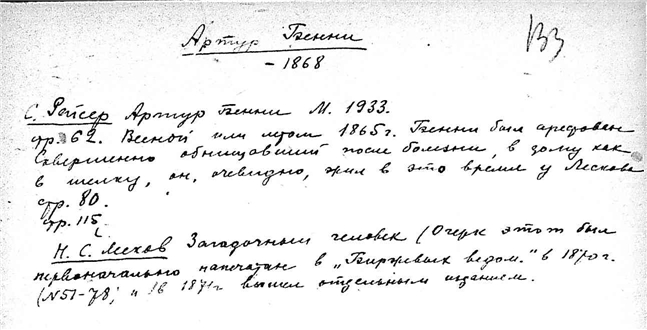 Артур Бенни
133
– 1868
С. Рейсер Артур Бенни М. 1933.
стр. 62. Весной или летом 1865 г. Бенни был арестован
Совершенно обнищавший после болезни, в дому как
в щелку, он, очевидно, жил в это время у Лескова
стр. 80.
стр. 115
Н. С. Лесков Загадочный человек (Очерк этот был
первоначально напечатан в „Биржевых ведом." в 1870 г.
(N 51–78; и в 1871 г вышел отдельным изданием.